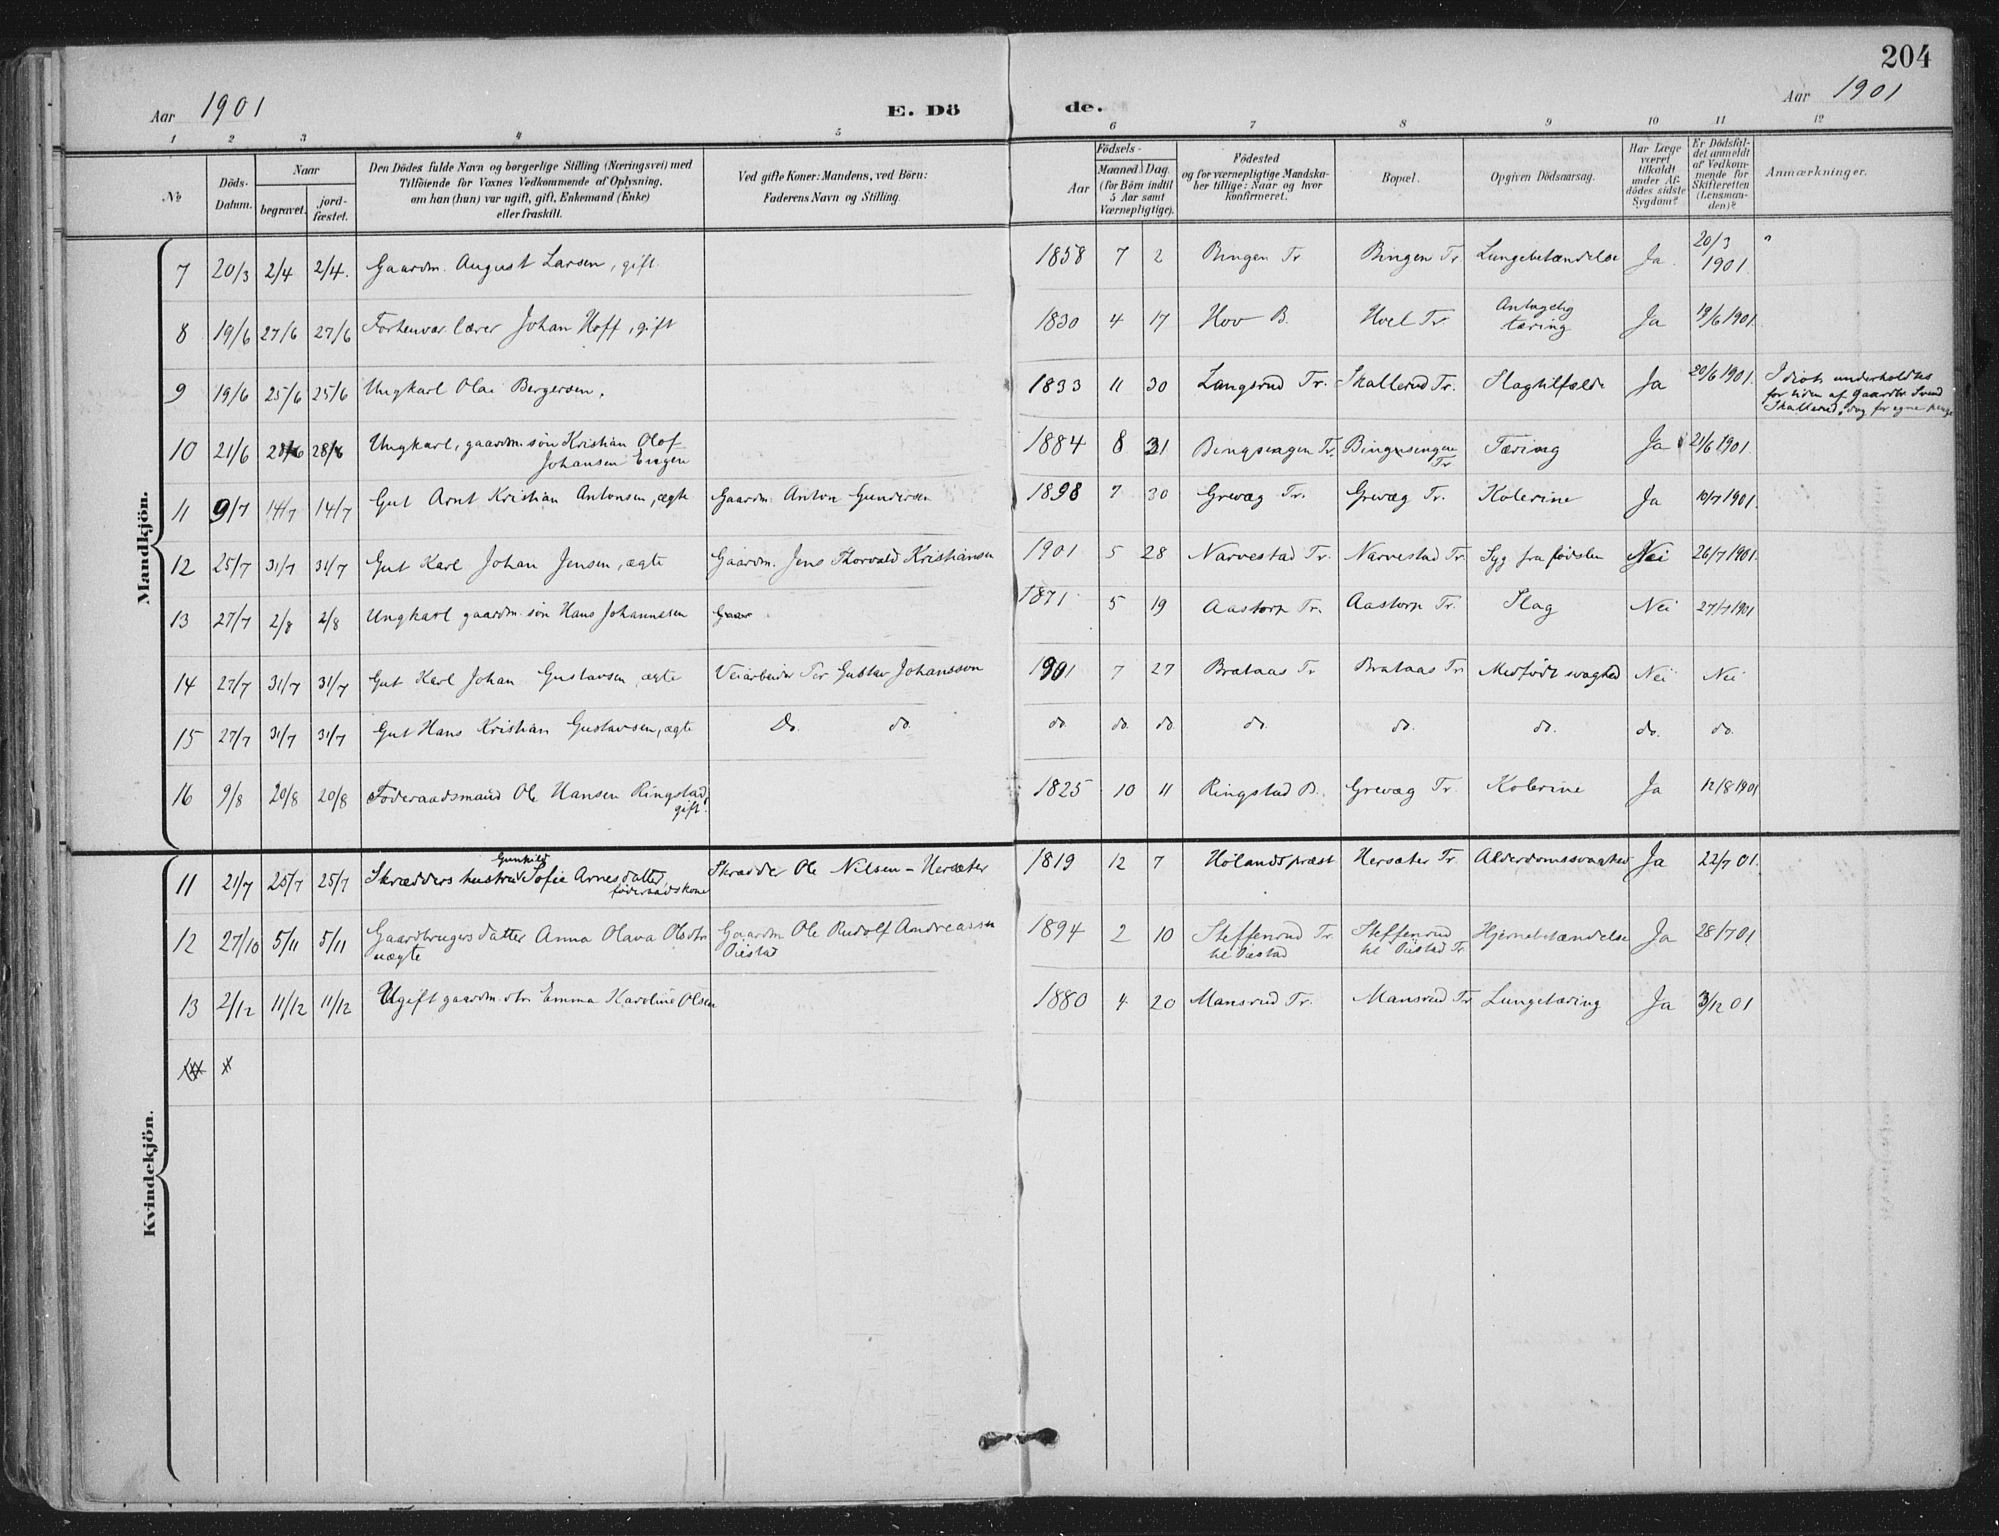 204
Aar 1901 E. Dö de. Aar 1901
1 2 3 4 5 6 7 8 9 10 11 12
№
Döds-
Datum.
Naar
begravet.
jord-
fæstet.
Den Dödes fulde Navn og borgerlige Stilling (Næringsvei) med
Tilföiende for Voxnes Vedkommende af Oplysning,
om han (hun) var ugift, gift, Enkemand (Enke)
eller fraskilt.
Ved gifte Koner: Mandens, ved Börn:
Faderens Navn og Stilling.
Födsels-
Aar
Maaned. Dag.
(for Börn indtil
5 Aar samt
Værnepligtige).
Födested
og for værnepligtige Mandska-
ber tillige: Naar og hvor
konfirmeret.
Bopæl.
Opgiven Dödsaarsag.
Har Læge
været
tilkaldt
under Af-
dödes sidste
Sygdom?
Er Dödsfal-
det anmeldt
af Vedkom-
mende for
Skifteretten
(Lensman-
den)?
Anmærkninger.
Mandkjön.
7 20/3 2/4 2/4. Gaardm. August Larsen, gift. 1858 7 2 Bingen Tr Bingen Tr Lungebetændelse Ja. 20/3 1901 "
8 19/6 27/6 27/6 Forhenvær. lærer Johan Hoff, gift 1830 4 17 Hov B. Hoel Tr. Antagelig tæring Ja 19/6 1901.
9 19/6 25/6 25/6 Ungkarl Olai Bergersen. 1833 11 30 Langsrud Tr. Skallerud Tr. Slagtilfælde Ja 20/6 1901. Idiot, underholdtes
for tiden af gaardbr Svend
Skallerud, dog for egne penge
10 21/6 28/6 28/6 Ungkarl, gaardm. søn Kristian Olof
Johansen Engen 1884 8 31 Bingsengen Tr. Bingsengen Tr. Tæring Ja 21/6 1901.
11 9/7 14/7 14/7 Gut Arnt Kristian Antonsen, ægte Gaardm. Anton Gundersen 1898 7 30 Grevæg Tr. Grevæg Tr. Kolerine Ja 10/7 1901.
12 25/7 31/7 31/7 Gut Karl Johan Jensen, ægte Gaardm. Jens Thorvald Kristiansen 1901 5 28 Narvestad Tr. Narvestad Tr. Syg fra fødslen Nei 26/7 1901.
13 27/7 2/8 2/8 Ungkarl gaardm. søn Hans Johannesen Gaar 1871 5 19 Aastorp Tr. Aastorp Tr. Slag Nei 27/7 1901
14 27/7 31/7 31/7 Gut Karl Johan Gustavsen, ægte Veiarbeider Per Gustav Johansson 1901 7 27 Brataas Tr Brataas Tr Medfødt svaghed Nei Nei
15 27/7 31/7 31/7 Gut Hans Kristian Gustavsen, ægte Do. do. do. do. do. do. do. do. do. do.
16 9/8 20/8 20/8 Føderaadsmand Ole Hansen Ringstad,
gift. 1825 10 11 Ringstad B. Grevæg Tr. Kolerine Ja 12/8 1901
Kvindekjön.
11 21/7 25/7 25/7 Skrædders hustru Gunhild Sofie Arnesdatter
føderaadskone Skrædder Ole Nilsen - Hersæter 1819 12 7 Hølands præst Hersæter Tr. Alderdomssvaghed Ja 22/7 01.
12 27/10 5/11 5/11 Gaardbrugers datter Anna Olava Olsdtr
uægte Gaardm Ole Rudolf Andreassen
1894 2 10 Steffensrud Tr. Steffensrud Hjernebetændelse Ja 28/7 01
13 2/12 11/12 11/12 Ugift gaardm. dtr. Emma Karoline Olsen 1880 4 20 Mansrud Tr. Mansrud Tr Lungetæring Ja 3/12 01